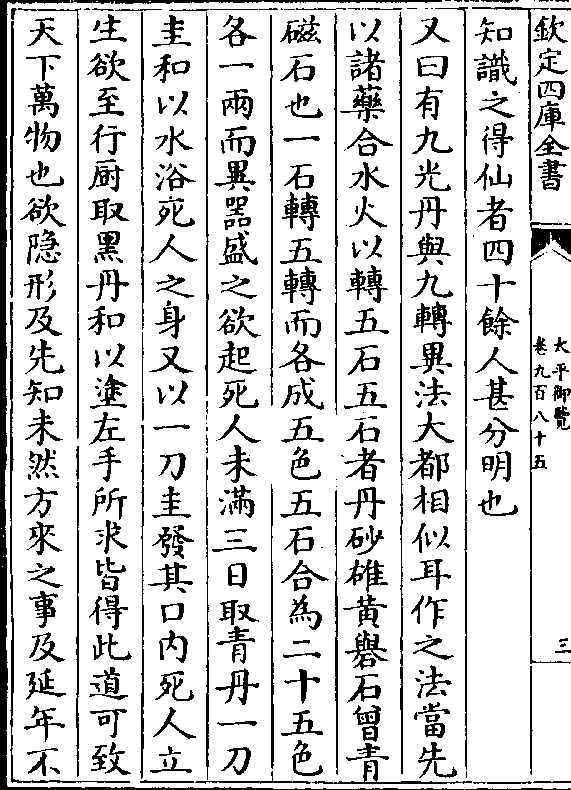 欽定四庫全書
太平御覽
卷九百八十五
三
知識之得仙者四十餘人甚分明也
又曰有九光丹與九轉異法大都相似耳作之法當先
以諸藥合水火以轉五石五石者丹砂雄黃礜石曾青
磁石也一石轉五轉而各成五色五石合為二十五色
各一兩而異器盛之欲起死人未滿三日取青丹一刀
圭和以水浴死人之身又以一刀圭發其口内死人立
生欲至行厨取黑丹和以塗左手所求皆得此道可致
天下萬物也欲隐形及先知未然方來之事及延年不